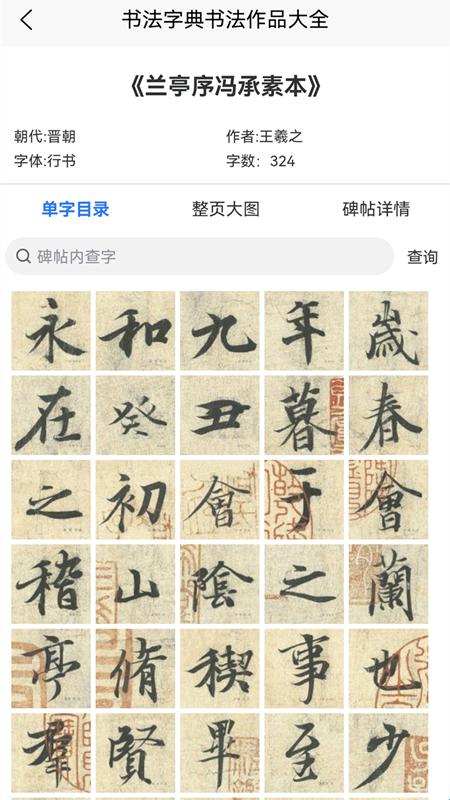 书法字典书法作品大全
《兰亭序冯承素本》
朝代:晋朝 作者:王羲之
字体:行书 字数：324
单字目录 整页大图 碑帖详情
碑帖内查字 查询
永和九年歲
在癸丑暮春
之初會于會
稽山陰之蘭
亭脩稧事也
羣賢畢至少